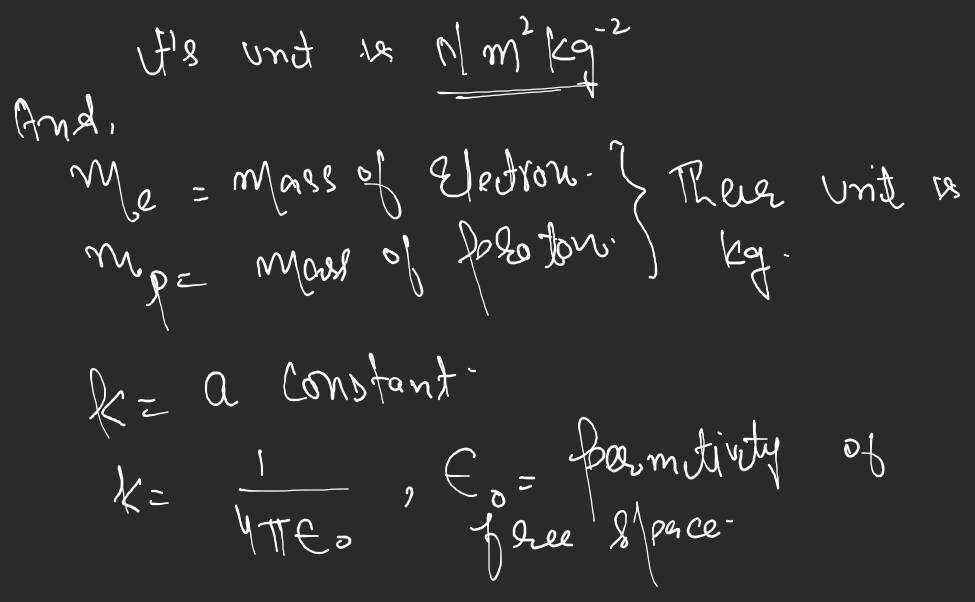 It's unit is N m² kg⁻²
And,
mₑ = mass of Electron. } Their unit is
mₚ = mass of proton. } kg.
k = a constant.
k = 1/4πϵ₀ , ϵ₀ = permitivity of
free space.